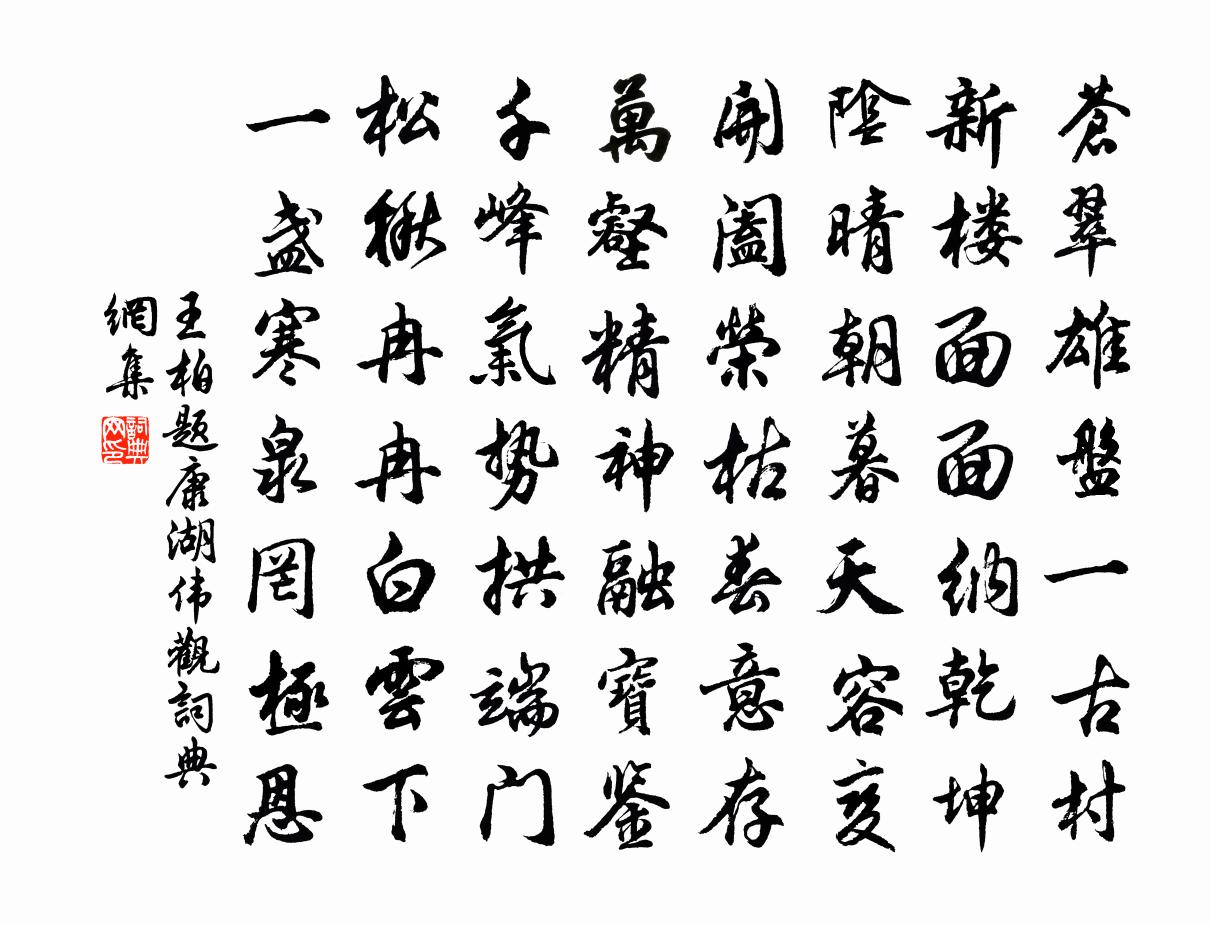 蒼翠雄盤一古村
新楼面面納乾坤
陰晴朝暮天容变
開闔榮枯春意存
萬壑精神融寶鉴
千峰氣势拱端门
松楸冉冉白雲下
一盏寒泉罔極恩
王柏题康湖伟觀詞典
網集
詞典
网印